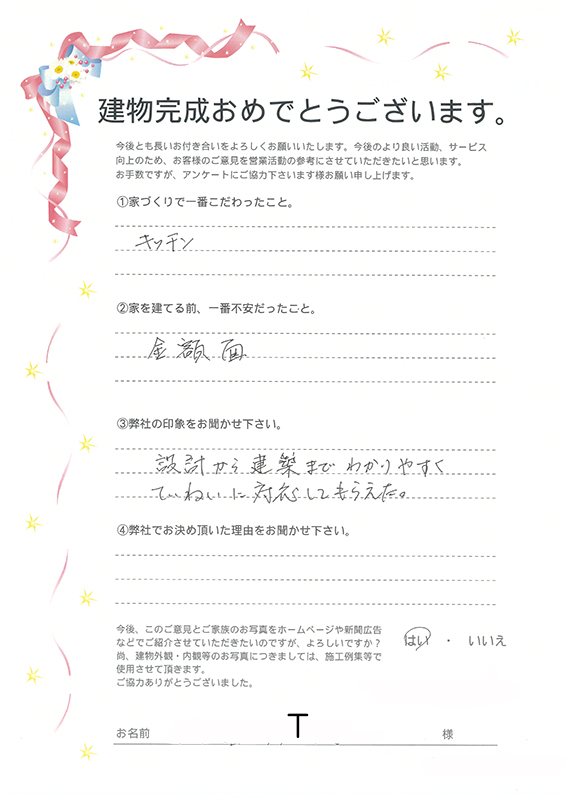 建物完成おめでとうございます。
今後とも長いお付き合いをよろしくお願いいたします。今後のより良い活動、サービス
向上のため、お客様のご意見を営業活動の参考にさせていただきたいと思います。
お手数ですが、アンケートにご協力下さいます様お願い申し上げます。
①家づくりで一番こだわったこと。
キッチン
②家を建てる前、一番不安だったこと。
金額面
③弊社の印象をお聞かせ下さい。
設計から建築までわかりやすく
ていねいに対応してもらえた。
④弊社でお決め頂いた理由をお聞かせ下さい。
今後、このご意見とご家族のお写真をホームページや新聞広告
などでご紹介させていただきたいのですが、よろしいですか?
尚、建物外観・内観等のお写真につきましては、施工例集等で
使用させて頂きます。
ご協力ありがとうございました。
はい ・ いいえ
お名前 T 様